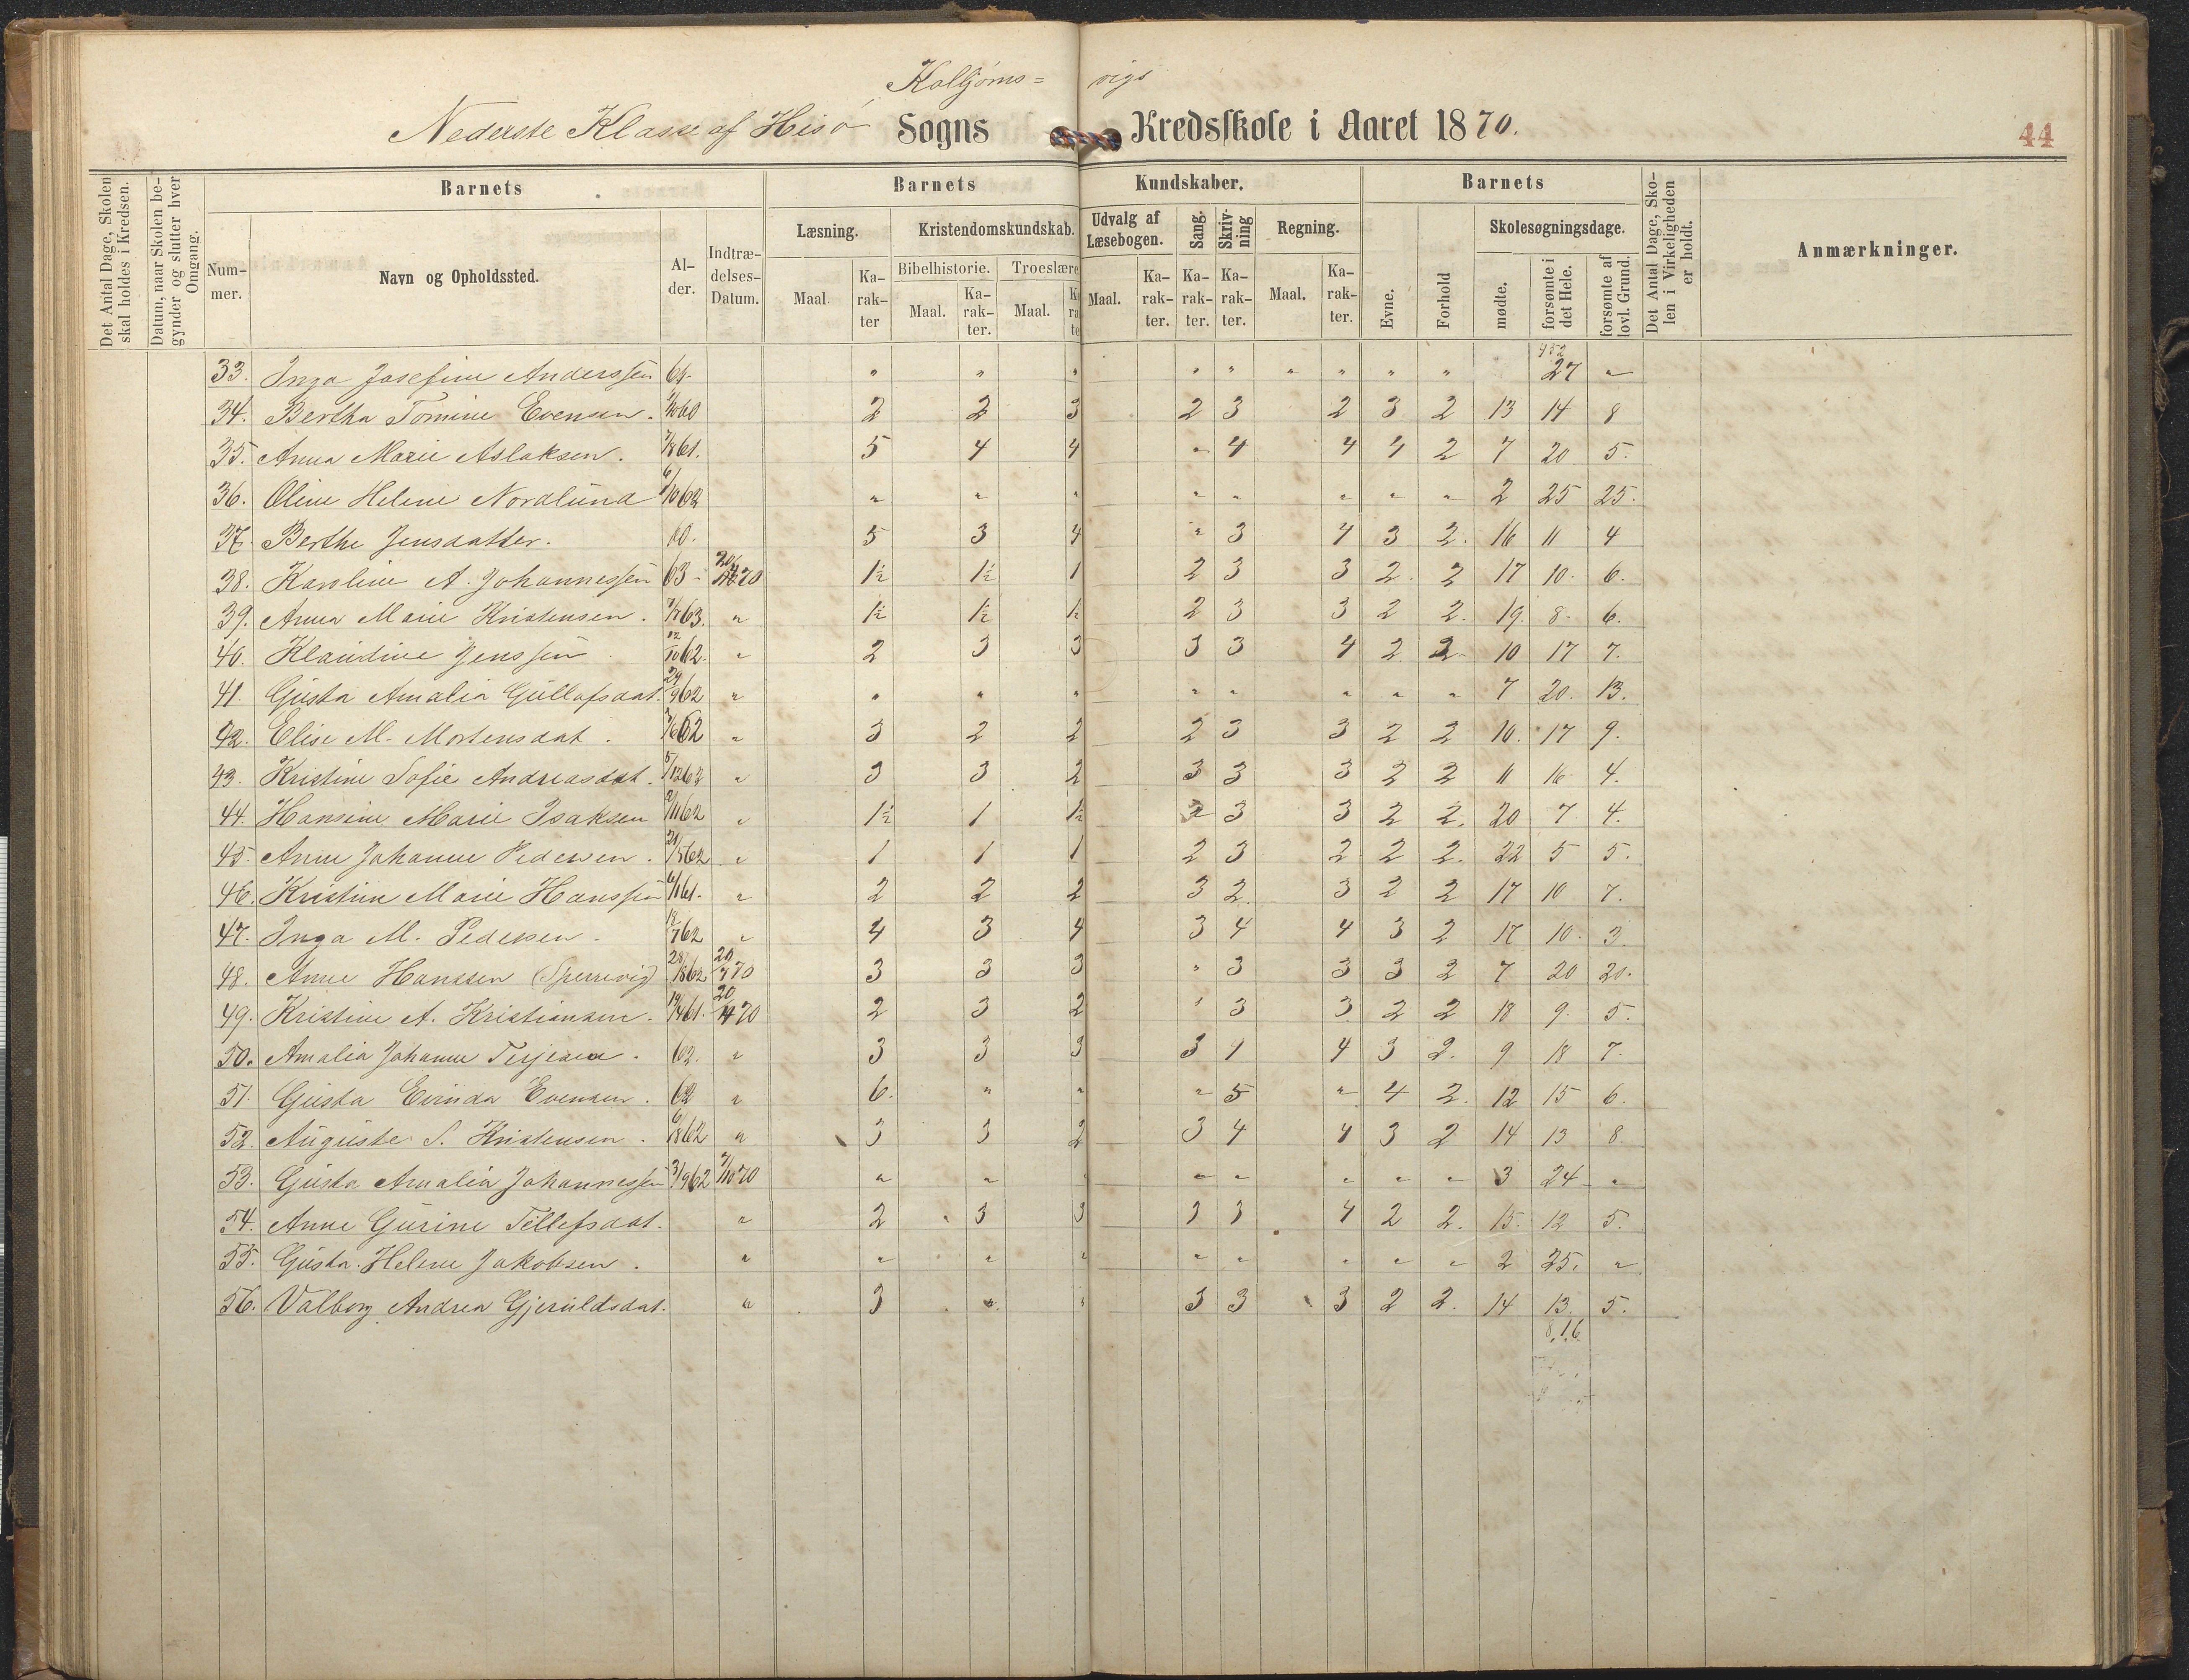 Kolbjørns= vigs
Nederste Klasse af Hisø Sogns Kredsskole i Aaret 1870.
44
Det Antal Dage, Skolen skal holdes i Kredsen.
Datum, naar Skolen begynder og slutter hver Omgang.
Barnets Barnets Kundskaber. Barnets
Det Antal Dage, Skolen i Virkeligheden er holdt.
Anmærkninger.
Nummer. Navn og Opholdssted. Alder. Indtrædelses-Datum.
Læsning. Kristendomskundskab. Udvalg af Læsebogen. Sang. Skrivning Regning. Evne. Forhold Skolesøgningsdage.
Bibelhistorie. Troeslære
Maal. Karakter Maal. Karakter. Maal. Maal. Karakter. Karakter. Karakter. Maal. Karakter. mødte. forsømte i det Hele. forsømte af lovl. Grund.
452
33. Inga Josefine Anderssen 61. " " " " " " " " " 27 "
34. Bertha Tomine Evensen. 60 2 2 3 2 3 2 3 2 13 14 8
35. Anna Marie Aslaksen. 7/8 61. 5 4 4 " 4 4 4 2 7 20 5.
36. Oline Helene Nordlund 6/10 62 " " " " " " " " 2 25 25.
37. Berthe Jensdatter. 60. 5 3 4 " 3 4 3 2. 16 11 4
38. Karoline A. Johannessen 63 - 70 1½ 1½ 1 2 3 3 2. 2 17 10. 6.
39. Anna Marie Kristensen. 7/7 63. " 1½ 1½ 1½ 2 3 3 2 2. 19. 8. 6.
40. Klaudine Jenssen 12/10 62. " 2 3 3 3 3 4 2 2. 10 17 7.
41. Gusta Amalia Gullofsdat. 29/9 62 " " " " " " " " " 7 20. 13.
42. Elise M. Mortensdat. 62 " 3 2 2 2 3 3 2 2 10. 17 9.
43. Kristine Sofie Andreasdat. 5/12 62 " 3 3 2 3 3 3 2 2 11 16 4.
44. Hansine Marie Isaksen 2/11 62 " 1½ 1 1½ 2 3 3 2 2. 20 7 4.
45. Anne Johanne Pedersen. 21/5 62 " 1 1 1 2 3 2 2 2. 22 5 5.
46. Kristine Marie Hanssen 61. " 2 2 2 3 2. 3 2 2 17 10 7.
47. Inga M. Pedersen. 18/7 62 " 4 3 4 3 4 4 3 2 17 10. 3
48. Anne Hanssen (Sperrevig) 28/8 62 20/7 70 3 3 3 " 3 3 3 2 7 20 20.
49. Kristine A. Kristiansen. 19/4 61. 20/4 70 2 3 2 " 3 3 2 2 18 9. 5.
50. Amalia Johanne Terjesen. 62. " 3 3 3 3 4 4 3 2. 9 18 7.
51. Gusta Evinda Evensen. 62 " 6. " " " 5 " 4 2. 12 15 6.
52. Auguste S. Kristensen. 6/8 62 " 3 3 2 3 4 4 3 2 14 13 8.
53. Gusta Amalia Johannessen 3/9 62 7/10 70 " " " " " " " " 3 24 "
54. Anne Gurine Tellefsdat. " 2 3 3 3 3 4 2 2. 15. 12 5.
55. Gusta Helene Jakobsen. " " " " " " " " " 2 25. "
56. Valborg Andrea Gjeruldsdat. " 3 " " 3 3 3 2 2. 14 13. 5.
816